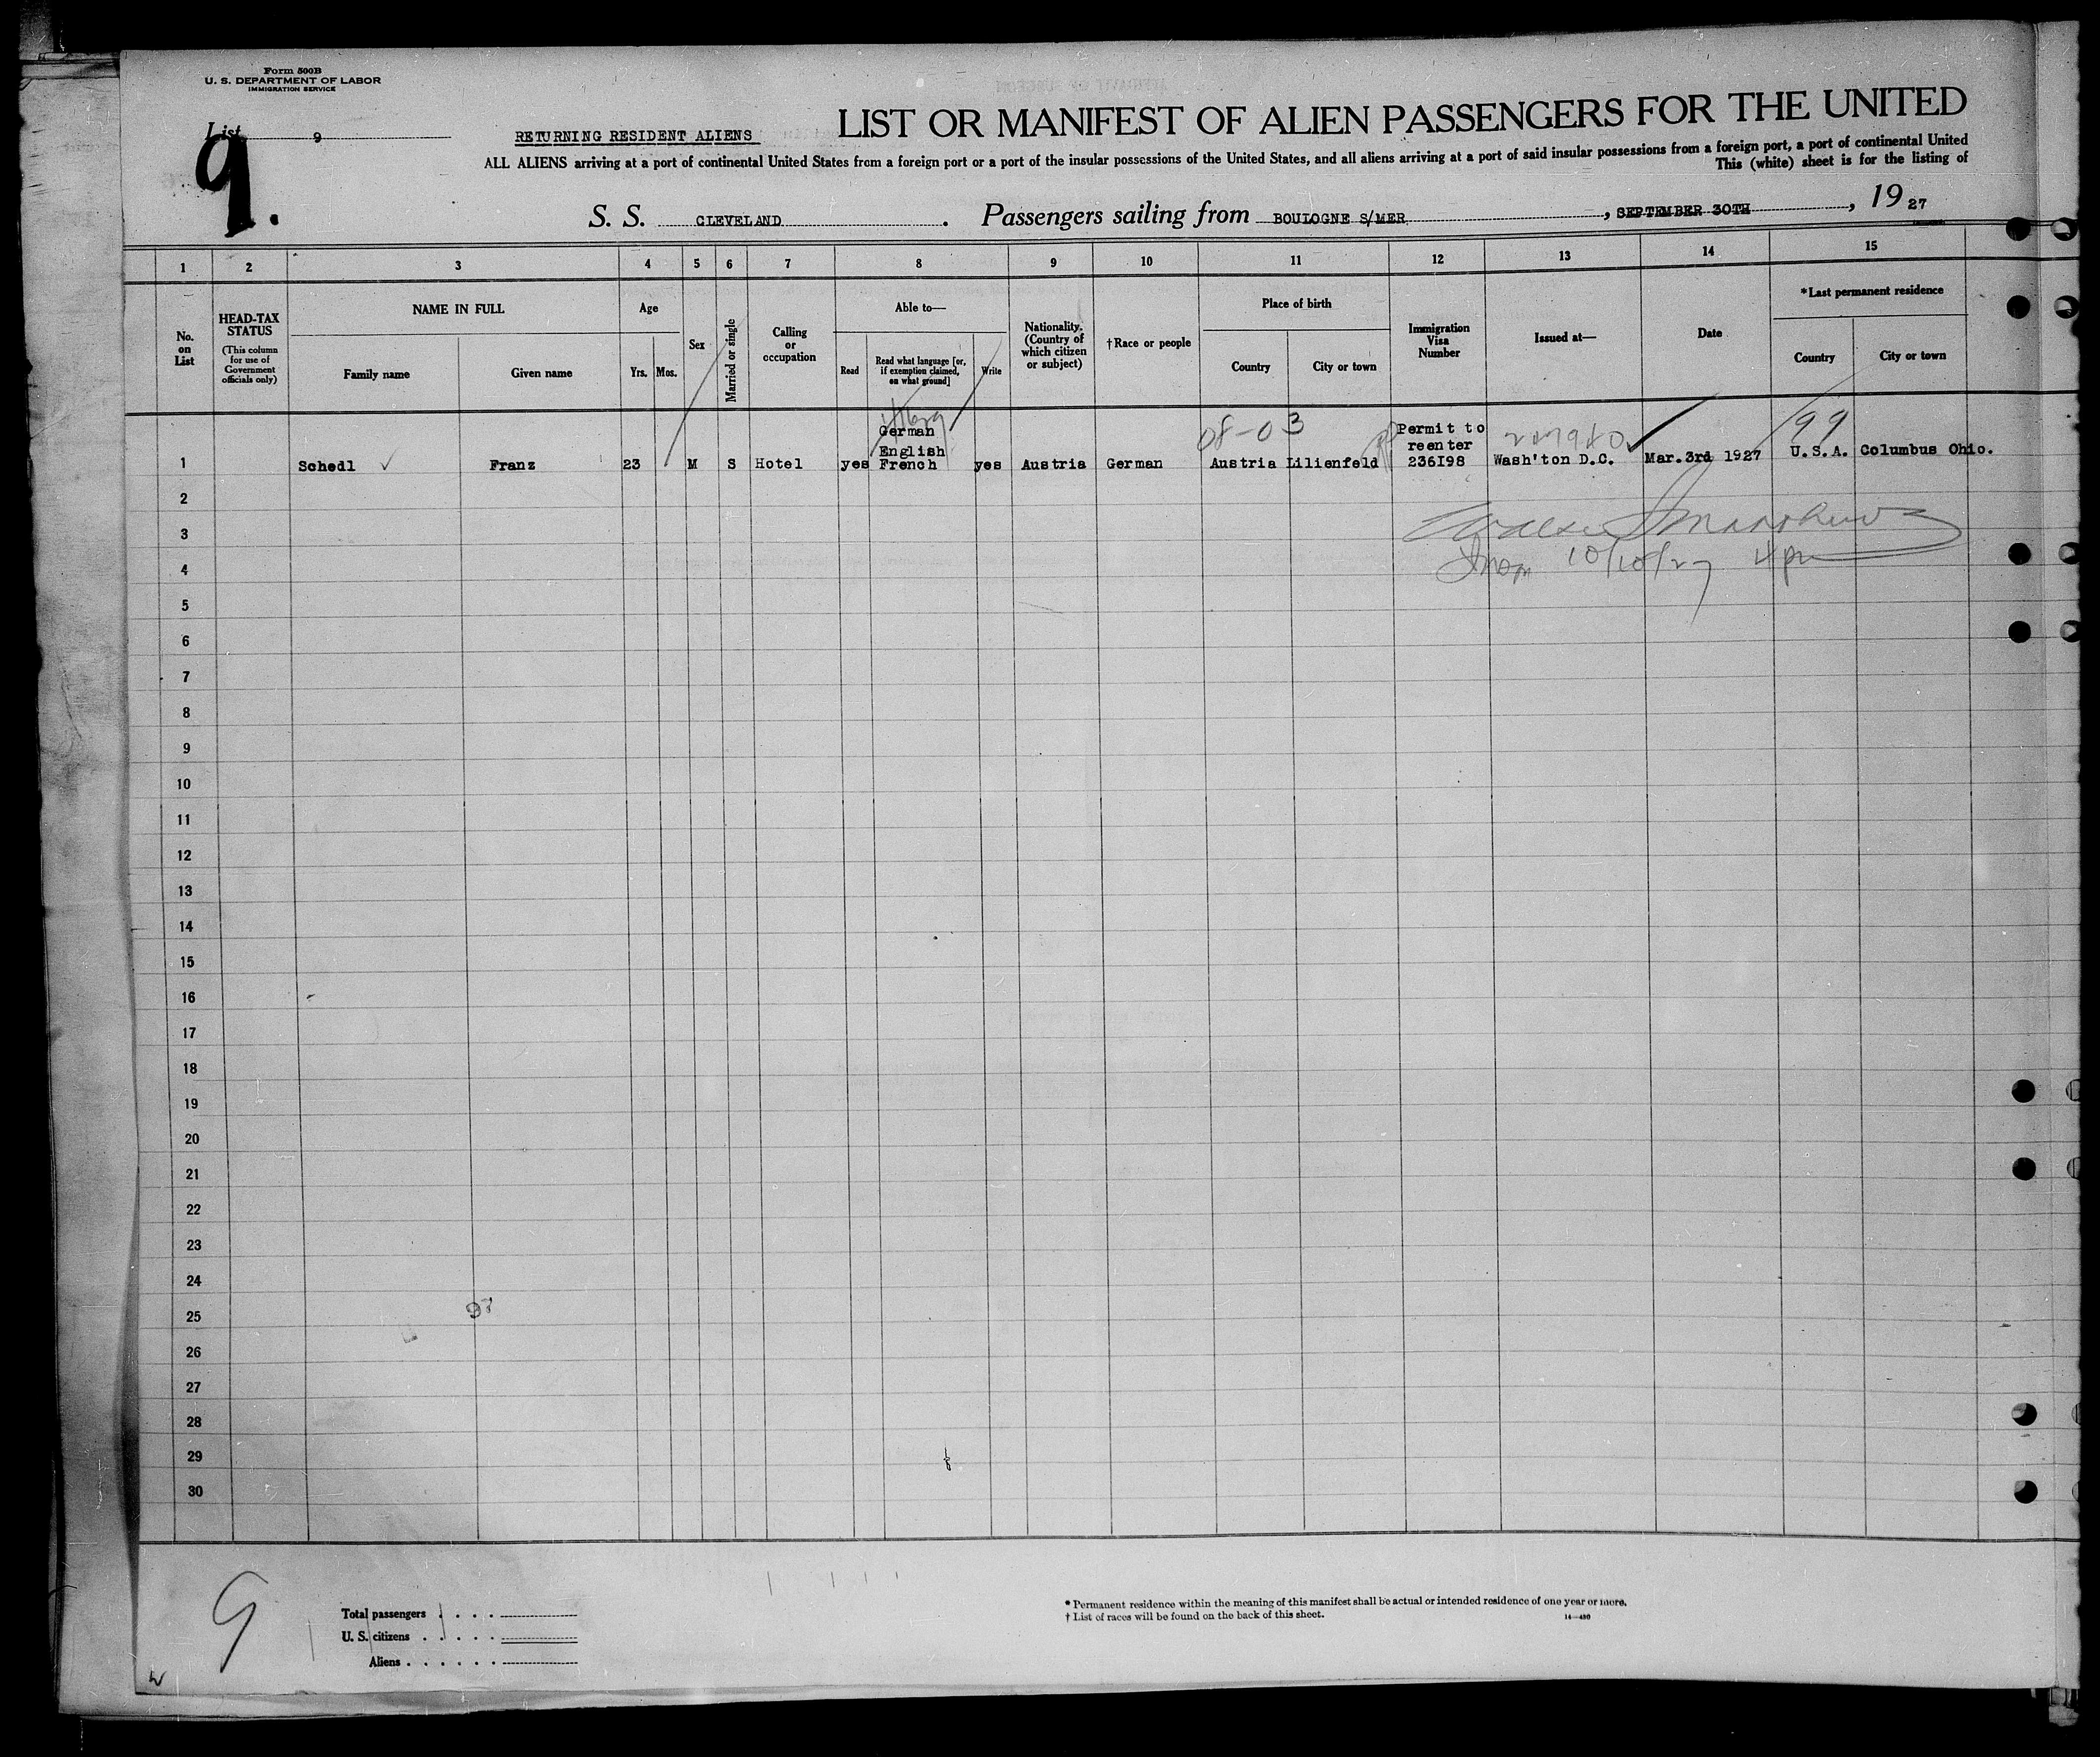 Form 500B
U. S. DEPARTMENT OF LABOR
IMMIGRATION SERVICE
List 9
9.
RETURNING RESIDENT ALIENS
LIST OR MANIFEST OF ALIEN PASSENGERS FOR THE UNITED
ALL ALIENS arriving at a port of continental United States from a foreign port or a port of the insular possessions of the United States, and all aliens arriving at a port of said insular possessions from a foreign port, a port of continental United
This (white) sheet is for the listing of
S. S. CLEVELAND. Passengers sailing from BOULOGNE S/MER, SEPTEMBER 30TH, 19 27
1 2 3 4 5 6 7 8 9 10 11 12 13 14 15
No. on List
HEAD-TAX STATUS
(This column for use of Government officials only)
NAME IN FULL
Family name
Given name
Age
Yrs. Mos.
Sex
Married or single
Calling or occupation
Able to—
Read
Read what language [or, if exemption claimed, on what ground]
Write
Nationality. (Country of which citizen or subject)
†Race or people
Place of birth
Country
City or town
Immigration Visa Number
Issued at—
Date
*Last permanent residence
Country
City or town
08-03
99
1 Schedl Franz 23 M S Hotel yes German English French yes Austria German Austria Lilienfeld Permit to reenter 236I98 Wash'ton D.C. Mar.3rd 1927 U.S.A. Columbus Ohio.
2
3
10/10/27 4 pm
4
5
6
7
8
9
10
11
12
13
14
15
16
17
18
19
20
21
22
23
24
25
26
27
28
29
30
9
Total passengers . . . .
U. S. citizens . . . . .
Aliens . . . . . .
* Permanent residence within the meaning of this manifest shall be actual or intended residence of one year or more.
† List of races will be found on the back of this sheet.
14—430